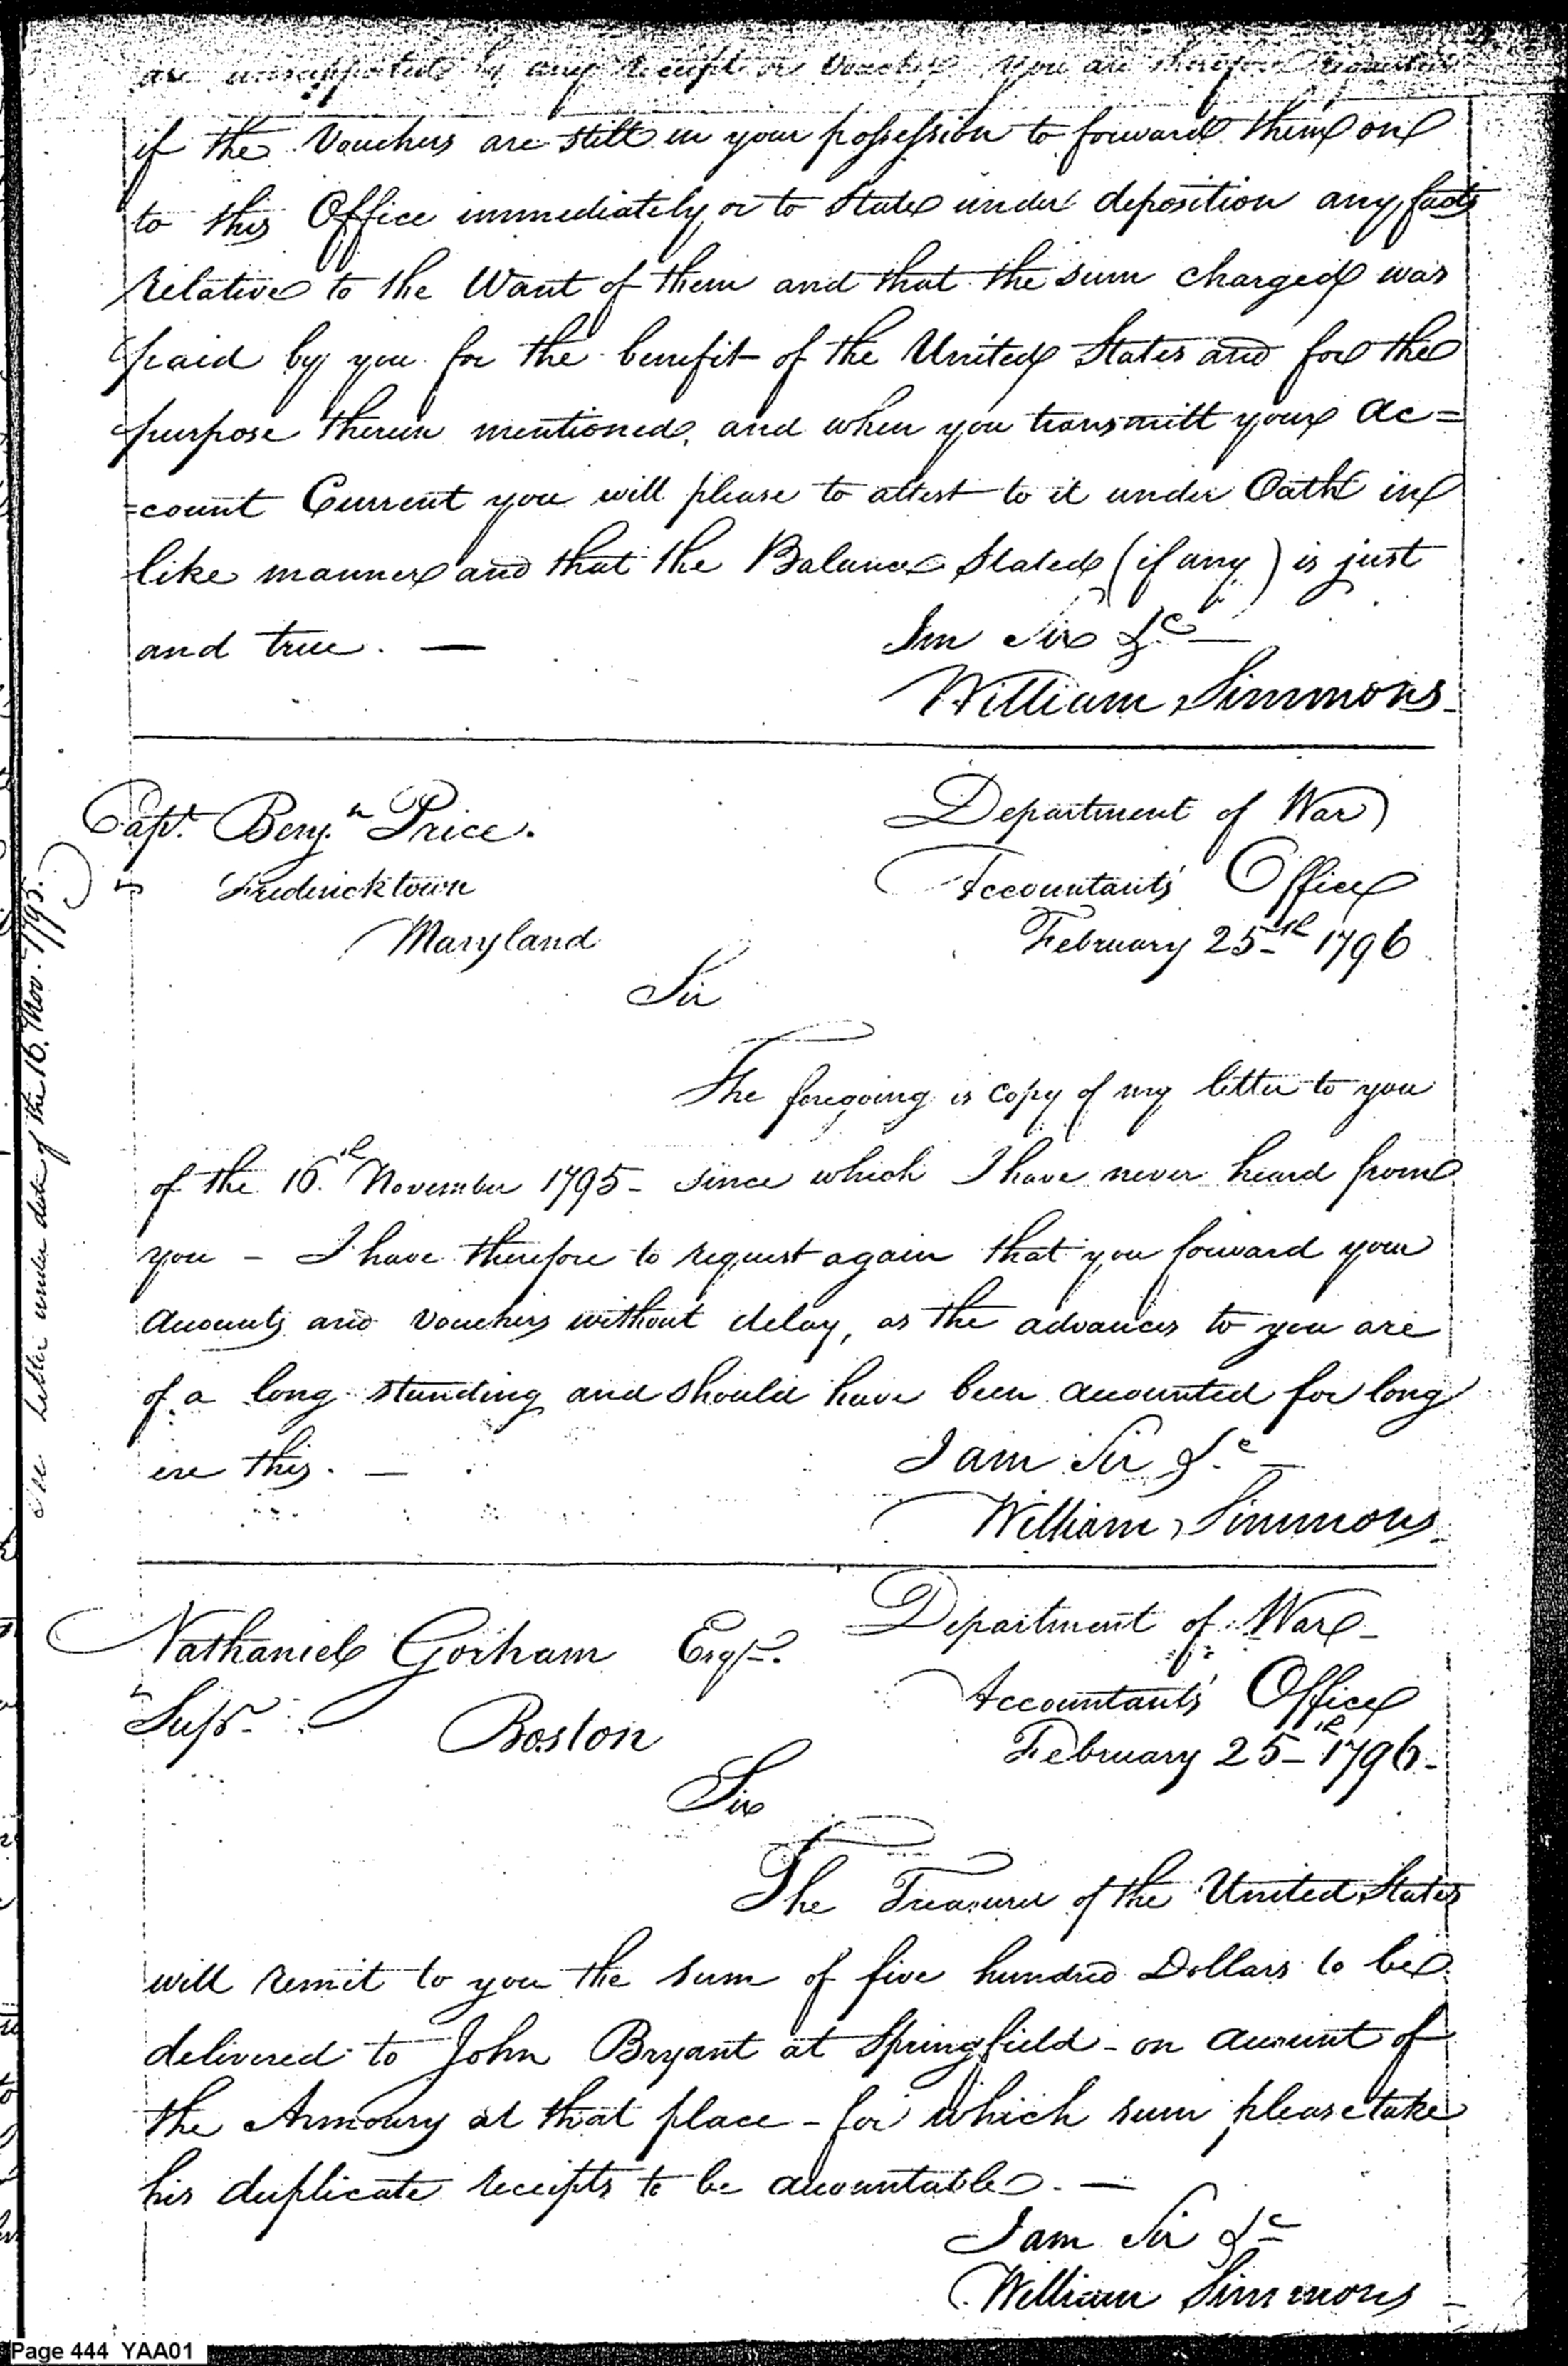 are unsupported by any Receipt or Voucher You are therefore requested
if the Vouchers are still in your possession to forward them on
to this Office immediately or to State under deposition any facts
relative to the Want of them and that the sum charged was
paid by you for the benefit of the United States and for the
purpose therein mentioned, and when you transmitt your Ac=
=count Current you will please to attest to it under Oath in
like manner and that the Balance Stated (if any) is just
and true. —
I'm Sir &c —
William Simmons
Capt. Benjn Price.
Fredericktown
Maryland
Department of War
Accountants Office
February 25th 1796
Sir
See letter under date of the 16. Nov. 1795.
The foregoing is copy of my letter to you
of the 16th November 1795 - since which I have never heard from
you - I have therefore to request again that you forward your
Accounts and Vouchers without delay, as the advances to you are
of a long standing and should have been accounted for long
ere this. —
I am Sir &c —
William Simmons
Nathaniel Gorham Esqr.
Supr. Boston
Department of War
Accountants' Office
February 25th 1796.
Sir
The Treasurer of the United States
will remit to you the sum of five hundred Dollars to be
delivered to John Bryant at Springfield - on account of
the Armoury at that place - for which sum please take
his duplicate receipts to be accountable. —
I am Sir &c
William Simmons
Page 444 YAA01